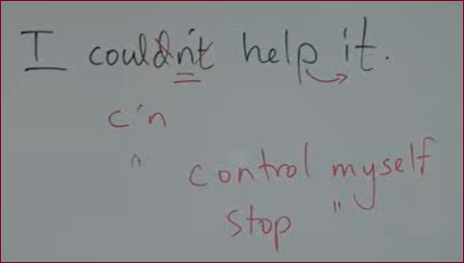 I couldn't help it.
c'n
" control myself
stop "